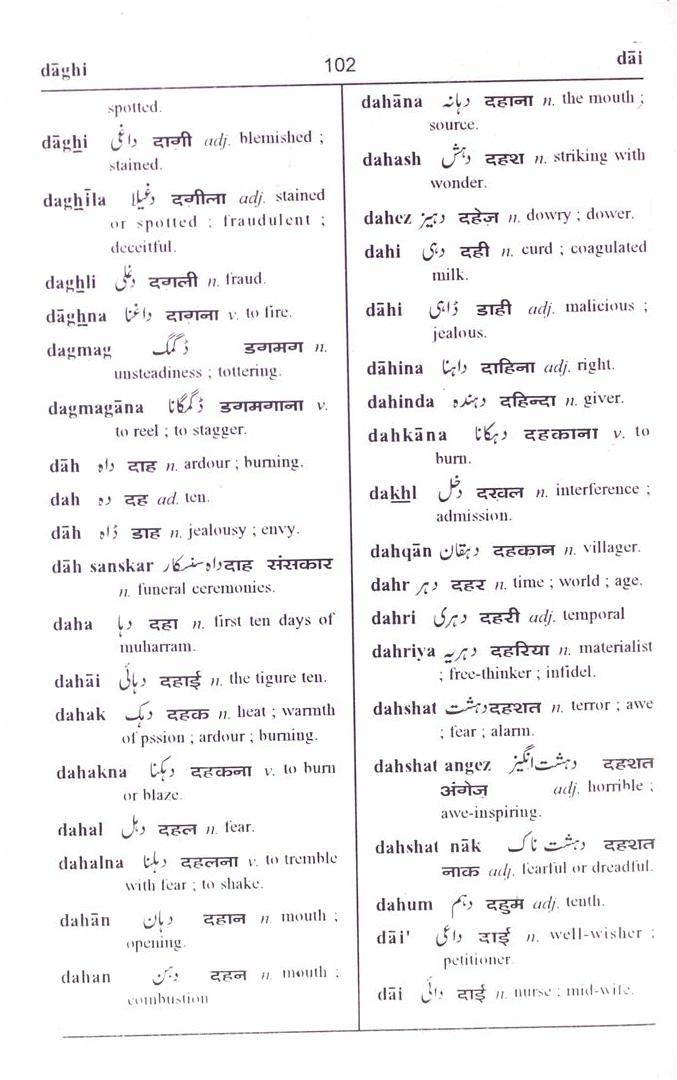 dāghi 102 dāi
spotted.
dāghi داغی दागी adj. blemished ;
stained.
daghīla دغیلا दगीला adj. stained
or spotted ; fraudulent ;
deceitful.
daghli دغلی दगली n. fraud.
dāghna داغنا दागना v. to fire.
dagmag ڈگمگ डगमग n.
unsteadiness ; tottering.
dagmagāna ڈگمگانا डगमगाना v.
to reel ; to stagger.
dāh داہ दाह n. ardour ; burning.
dah دہ दह ad. ten.
dāh ڈاہ डाह n. jealousy ; envy.
dāh sanskar داہ سنسکار दाह संसकार
n. funeral ceremonies.
daha دہا दहा n. first ten days of
muharram.
dahāi دہائی दहाई n. the tigure ten.
dahak دہک दहक n. heat ; warmth
of pssion ; ardour ; burning.
dahakna دہکنا दहकना v. to burn
or blaze.
dahal دہل दहल n. fear.
dahalna دہلنا दहलना v. to tremble
with fear ; to shake.
dahān دہان दहान n. mouth ;
opening.
dahan دہن दहन n. mouth ;
combustion
dahāna دہانہ दहाना n. the mouth ;
source.
dahash دہش दहश n. striking with
wonder.
dahez دہیز दहेज़ n. dowry ; dower.
dahi دہی दही n. curd ; coagulated
milk.
dāhi ڈاہی डाही adj. malicious ;
jealous.
dāhina داہنا दाहिना adj. right.
dahinda دہندہ दहिन्दा n. giver.
dahkāna دہکانا दहकाना v. to
burn.
dakhl دخل दखल n. interference ;
admission.
dahqān دہقان दहकान n. villager.
dahr دہر दहर n. time ; world ; age.
dahri دہری दहरी adj. temporal
dahriya دہریہ दहरिया n. materialist
; free-thinker ; infidel.
dahshat دہشت दहशत n. terror ; awe
; fear ; alarm.
dahshat angez دہشت انگیز दहशत
अंगेज़ adj. horrible ;
awe-inspiring.
dahshat nāk دہشت ناک दहशत
नाक adj. fearful or dreadful.
dahum دہم दहुम adj. tenth.
dāi' داعی दाई n. well-wisher ;
petitioner.
dāi دائی दाई n. nurse ; mid-wife.